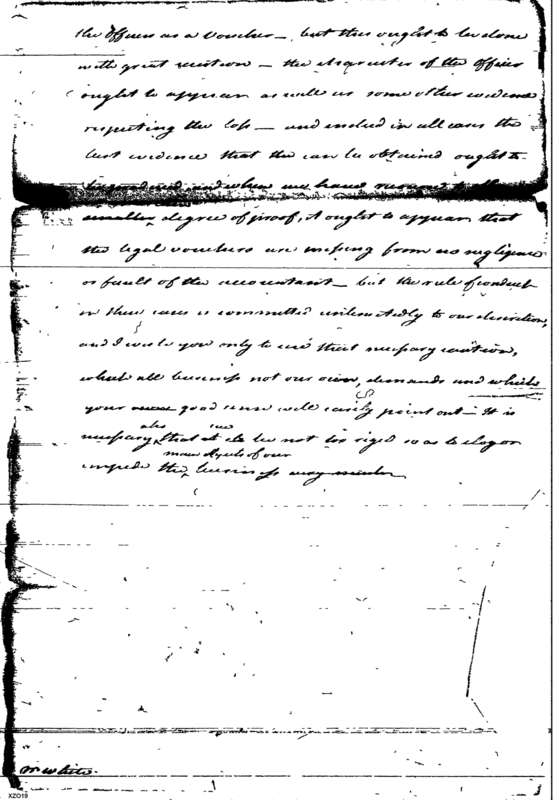 the Officers as a Voucher — but this ought to be done
with great caution — the character of the Officer
ought to appear as well as some other evidence
respecting the loss — and indeed in all cases the
best evidence that the can be obtained ought to
be produced, and when we have recourse to
smaller degree of proof, it ought to appear that
the legal vouchers are missing from no negligence
or fault of the accountant — but the rule of conduct
in these cases is committed unlimitedly to our discretion,
and I wish you only to use that necessary caution,
which all business not our own, demands and which
your good sense will easily point out — It is
also we
necessary that be not too rigid so as to clog or
main objects of our
impede the business
Mr White.
XZO19